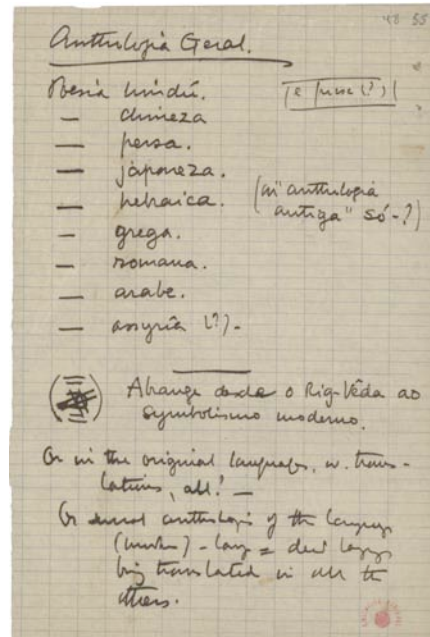 48-55
Anthologia Geral.
Poesia hindú.
— chineza
— persa.
— japoneza.
— hebraica. (in "anthologia
antiga" só-?)
— grega.
— romana.
— arabe.
— assyria (?) -
Abrange desde o Rig-Vêda ao
symbolismo moderno.
Or in the original languages, w. trans-
lations, all! —
Or anthologies of the
being translated in all the
others.